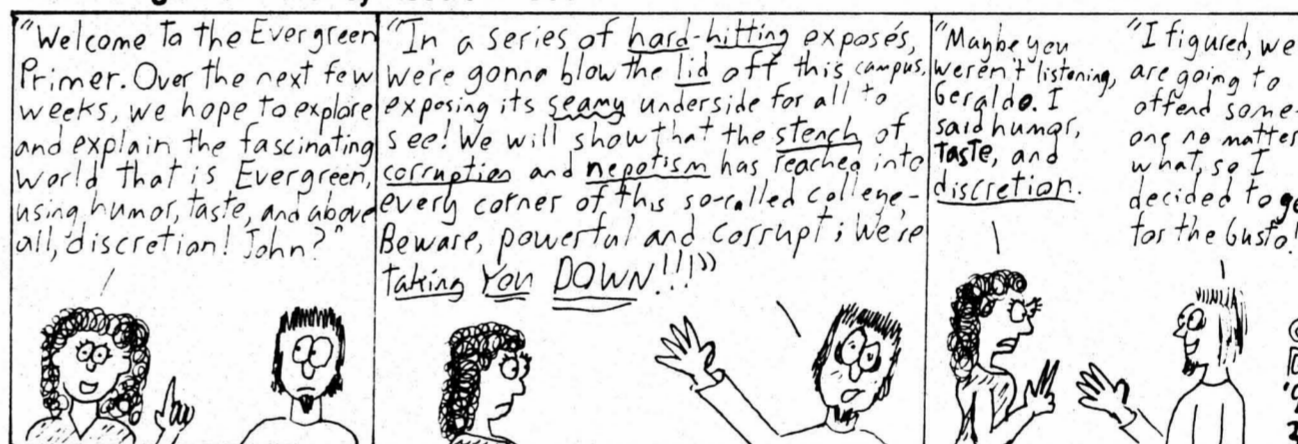 "Welcome to the Evergreen
Primer. Over the next few
weeks, we hope to explore
and explain the fascinating
world that is Evergreen,
using humor, taste, and above
all, discretion! John?"
"In a series of hard-hitting exposés,
we're gonna blow the lid off this campus,
exposing its seamy underside for all to
see! We will show that the stench of
corruption and nepotism has reached into
every corner of this so-called college-
Beware, powerful and corrupt; We're
taking You DOWN!!!"
"Maybe you
weren't listening,
Geraldo. I
said humor,
taste, and
discretion.
"I figured, we
are going to
offend some-
one no matter
what, so I
decided to go
for the Gusto!